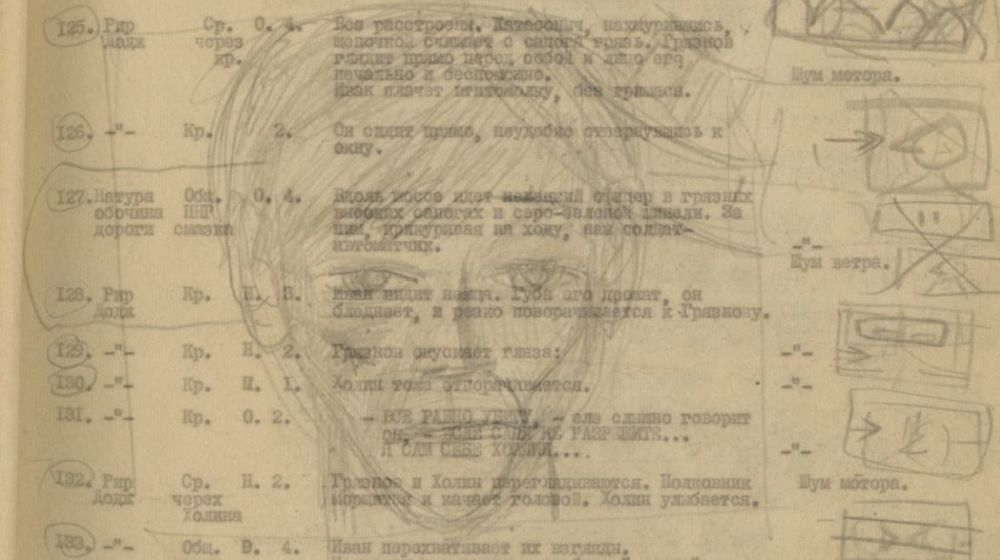 125. Рир Ср. О. 4. Все расстроены. Катасоныч, нахмурившись,
Додж через щепочкой счищает с сапога грязь. Грязнов
кр. глядит прямо перед собой и лицо его
печально и беспомощно. Шум мотора.
Иван плачет втихомолку, без гримасы.
126. -"- Кр. 2. Он сидит прямо, неудобно отвернувшись к
окну.
127. Натура Общ. О. 4. Вдоль шоссе идет немецкий офицер в грязных
обочина ПНР высоких сапогах и серо-зеленой шинели. За
дороги смазка ним, прикуривая на ходу, наш солдат-
автоматчик. -"-
Шум ветра.
128. Рир Кр. Н. 3. Иван видит немца. Губы его дрожат, он
Додж бледнеет, и резко поворачивается к Грязнову.
129. -"- Кр. Н. 2. Грязнов опускает глаза: -"-
130. -"- Кр. М. 1. Холин тоже отворачивается. -"-
131. -"- Кр. О. 2. - ВСЕ РАВНО УЙДУ, - еле слышно говорит
он, - ЕСЛИ НЕ РАЗРЕШИТЕ...
Я САМ СЕБЕ ХОЗЯИН.... -"-
132. Рир Ср. Н. 2. Грязнов и Холин переглядываются. Полковник Шум мотора.
Додж черех морщится и качает головой. Холин улыбается.
Холина
133. -"- Общ. 4. Иван перехватывает их взгляды.